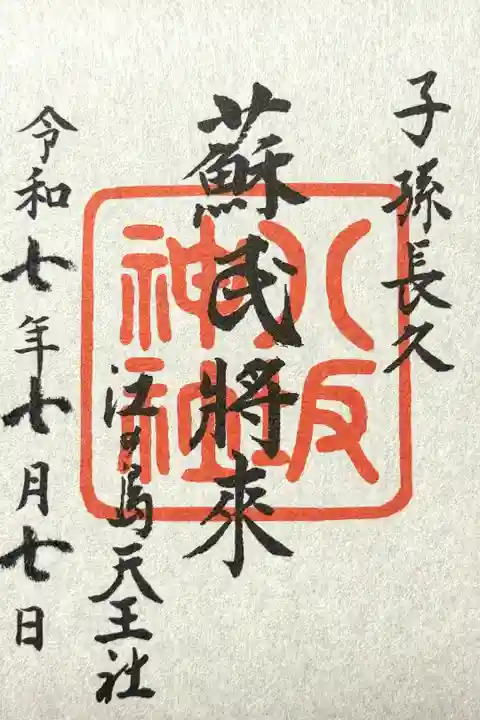 子孫長久
蘇民將來
八坂神社
江の島天王社
令和七年七月七日